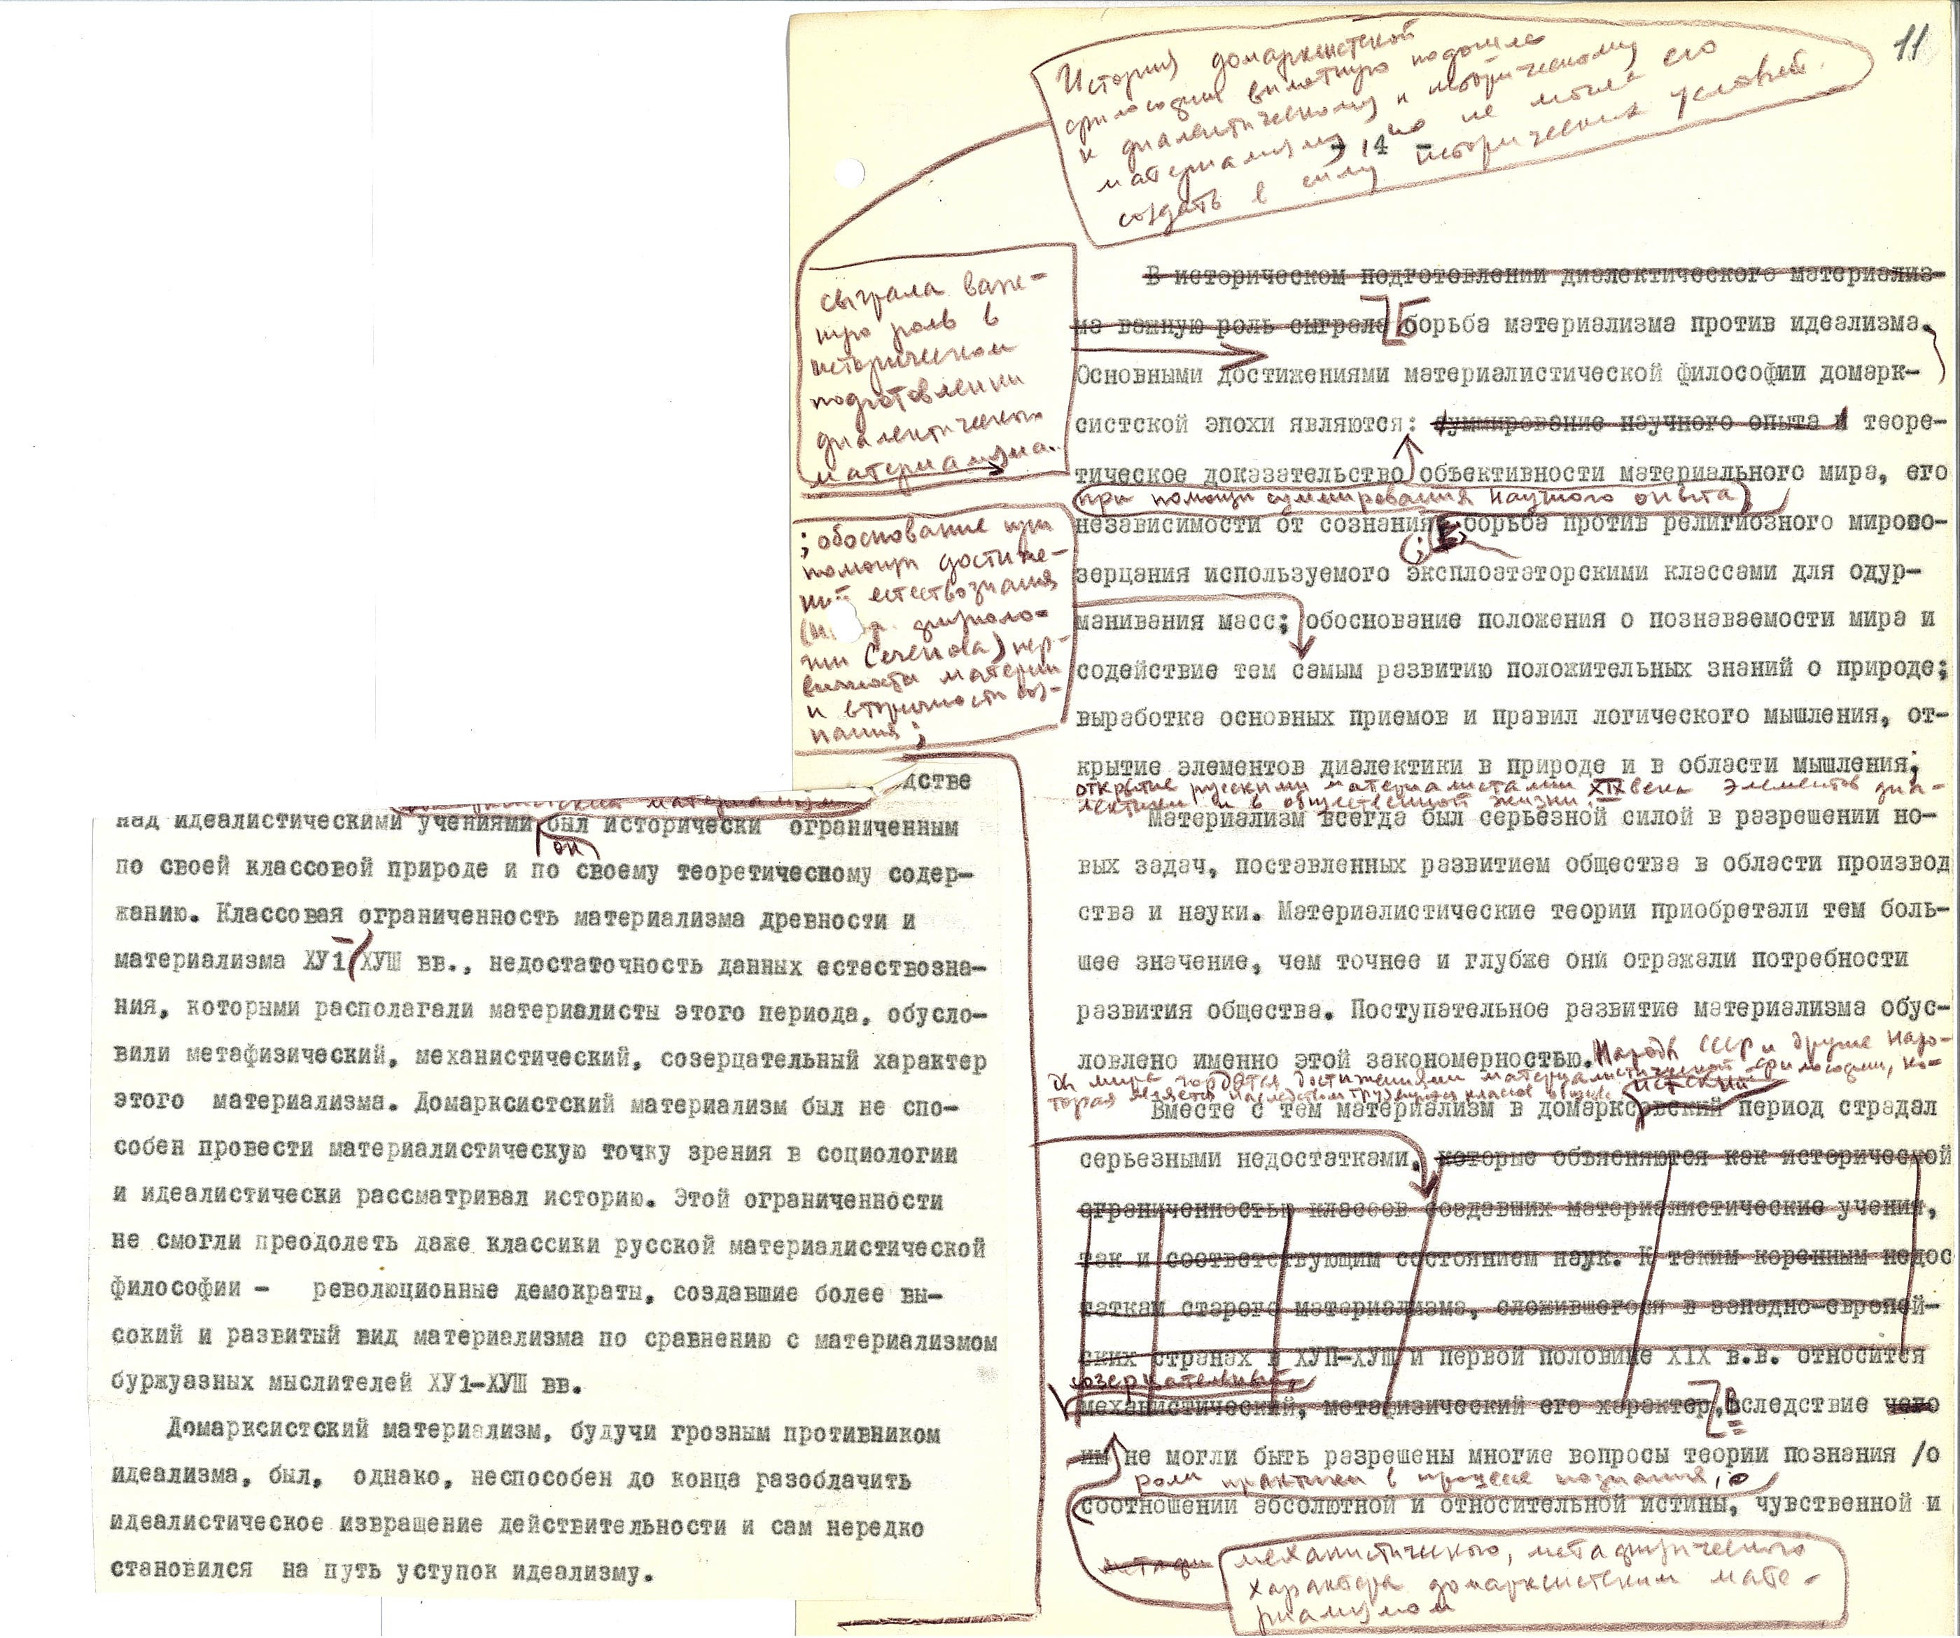 11
История домарксистской
философии вплотную подошла
к диалектическому и историческому
материализму, но не могла его
создать в силу исторических условий.
- 14 -
сыграла важ-
ную роль в
историческом
подготовлении
диалектического
материализма.
В историческом подготовлении диалектического материализ-
ма важную роль сыграла Борьба материализма против идеализма.
Основными достижениями материалистической философии домарк-
систской эпохи являются: суммирование научного опыта и теоре-
тическое доказательство объективности материального мира, его
при помощи суммирования научного опыта
независимости от сознания; борьба против религиозного мирово-
зерцания используемого эксплоататорскими классами для одур-
манивания масс; обоснование положения о познаваемости мира и
содействие тем самым развитию положительных знаний о природе;
выработка основных приемов и правил логического мышления, от-
крытие элементов диалектики в природе и в области мышления;
открытие русскими материалистами XIX века элементов диа-
лектики и в общественной жизни.
; обоснование при
помощи достиже-
ний естествознания
физиоло-
гии Сеченова) пер-
вичности материи
и вторичности соз-
нания;
Материализм всегда был серьезной силой в разрешении но-
вых задач, поставленных развитием общества в области производ
ства и науки. Материалистические теории приобретали тем боль-
шее значение, чем точнее и глубже они отражали потребности
развития общества. Поступательное развитие материализма обус-
ловлено именно этой закономерностью. Народы СССР и другие наро-
ды мира гордятся достижениями материалистической философии, ко-
торая является
истский
Вместе с тем материализм в домарксовский период страдал
серьезными недостатками, которые объясняются как исторической
ограниченностью классов создавших материалистические учения,
так и соответствующим состоянием наук. К таким коренным недос
таткам старого материализма, сложившегося в западно-европей-
ских странах в ХУП-ХУШ и первой половине XIX в.в. относится
созерцательный,
механистический, метафизический его характер, Вследствие чего
им не могли быть разрешены многие вопросы теории познания /о
роли практики в процессе познания, о
соотношении абсолютной и относительной истины, чувственной и
метафи
механистического, метафизического
характера домарксистским мате-
риализмом
дстве
материализм
над идеалистическими учениями был исторически ограниченным
он
по своей классовой природе и по своему теоретическому содер-
жанию. Классовая ограниченность материализма древности и
материализма ХУ1-ХУШ вв., недостаточность данных естествозна-
ния, которыми располагали материалисты этого периода, обусло-
вили метафизический, механистический, созерцательный характер
этого материализма. Домарксистский материализм был не спо-
собен провести материалистическую точку зрения в социологии
и идеалистически рассматривал историю. Этой ограниченности
не смогли преодолеть даже классики русской материалистической
философии - революционные демократы, создавшие более вы-
сокий и развитый вид материализма по сравнению с материализмом
буржуазных мыслителей ХУ1-ХУШ вв.
Домарксистский материализм, будучи грозным противником
идеализма, был, однако, неспособен до конца разоблачить
идеалистическое извращение действительности и сам нередко
становился на путь уступок идеализму.